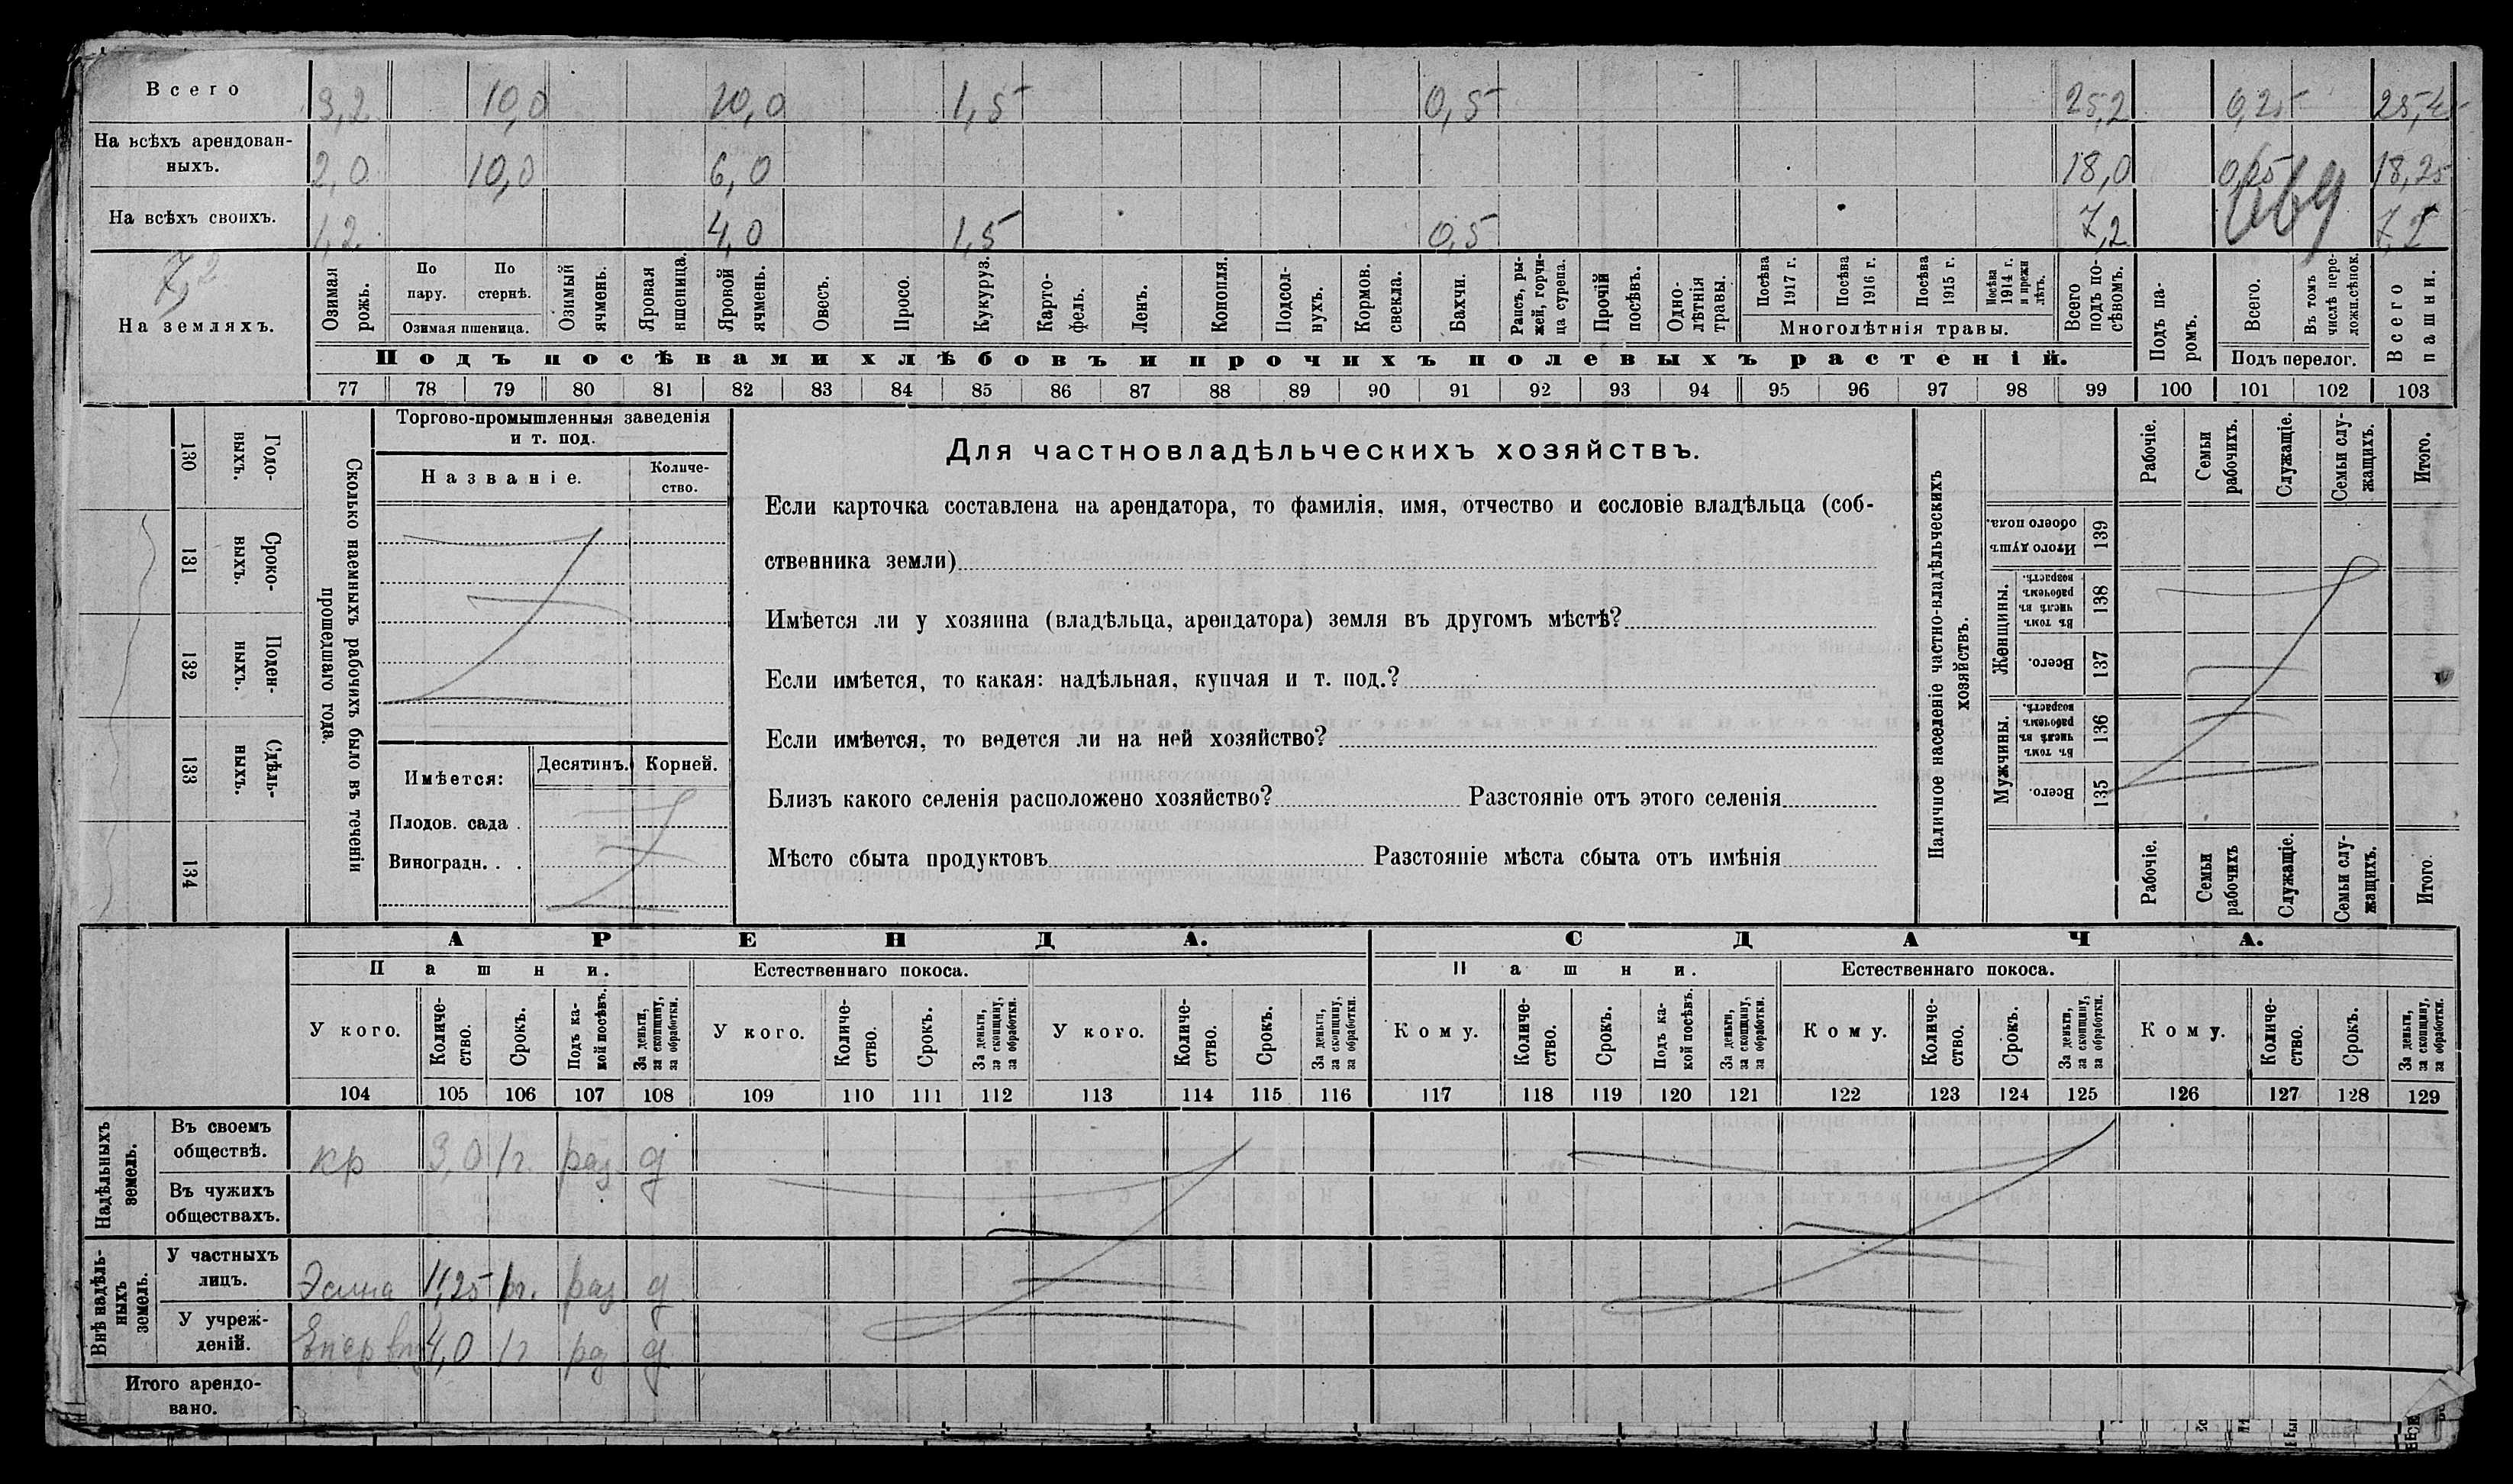 Всего 3,2 10,0 10,0 1,5 0,5 25,2 0,25
На всѣхъ арендован-
ныхъ. 2,0 10,0 6,0 18,0 0,25 18,25
На всѣхъ своихъ. 1,2 4,0 1,5 0,5 7,2 7,2
7,2
На земляхъ.
Озимая рожь.
По пару.
По стернѣ.
Озимая пшеница.
Озимый ячмень.
Яровая пшеница.
Яровой ячмень.
Овесъ.
Просо.
Кукуруз.
Карто-
фель.
Ленъ.
Конопля.
Подсол-
нухъ.
Кормов. свекла.
Бахчи.
Рапсъ, ры-
жей, горчи-
ца сурепа.
Прочій посѣвъ.
Одно-
лѣтнія травы.
Посѣва 1917 г.
Посѣва 1916 г.
Посѣва 1915 г.
Посѣва 1914 г. и прежн лѣтъ.
Многолѣтнія травы.
Всего подъ по-
сѣвомъ.
Подъ па-
ромъ.
Всего.
Въ томъ числѣ пере-
ложн.сѣнок.
Подъ перелог.
Всего пашни.
Подъ посѣвами хлѣбовъ и прочихъ полевыхъ растеній.
77 78 79 80 81 82 83 84 85 86 87 88 89 90 91 92 93 94 95 96 97 98 99 100 101 102 103
130 Годо-
выхъ.
131 Сроко-
выхъ.
132 Поден-
ныхъ.
133 Сдѣль-
ныхъ.
134
Сколько наемныхъ рабочихъ было въ теченіи
прошедшаго года.
Торгово-промышленныя заведенія
и т. под.
Названіе.
Количе-
ство.
Имѣется: Десятинъ. Корней.
Плодов. сада .
Виноградн. . .
Для частновладѣльческихъ хозяйствъ.
Если карточка составлена на арендатора, то фамилія, имя, отчество и сословіе владѣльца (соб-
ственника земли)
Имѣется ли у хозяина (владѣльца, арендатора) земля въ другомъ мѣстѣ?
Если имѣется, то какая: надѣльная, купчая и т. под.?
Если имѣется, то ведется ли на ней хозяйство?
Близъ какого селенія расположено хозяйство? Разстояніе отъ этого селенія
Мѣсто сбыта продуктовъ Разстояніе мѣста сбыта отъ имѣнія
Наличное населеніе частно-владѣльческихъ
хозяйствъ.
Рабочіе.
Семьи рабочихъ.
Служащіе.
Семьи слу-
жащихъ.
Итого.
Итого душъ обоего пола. 139
Женщины.
Въ томъ числѣ въ рабочемъ возрастѣ. 138
Всего. 137
Мужчины.
Въ томъ числѣ въ рабочемъ возрастѣ. 136
Всего. 135
Рабочіе.
Семьи рабочихъ
Служащіе.
Семьи слу-
жащихъ.
Итого.
АРЕНДА. СДАЧА.
Пашни. Естественнаго покоса. Пашни. Естественнаго покоса.
У кого.
Количе-
ство.
Срокъ.
Подъ ка-
кой посѣвъ.
За деньги, за скопщину, за обработки.
У кого.
Количе-
ство.
Срокъ.
За деньги, за скопщину, за обработки.
У кого.
Количе-
ство.
Срокъ.
За деньги, за скопщину, за обработки.
Кому.
Количе-
ство.
Срокъ.
Подъ ка-
кой посѣвъ.
За деньги, за скопщину, за обработки.
Кому.
Количе-
ство.
Срокъ.
За деньги, за скопщину, за обработки.
Кому.
Количе-
ство.
Срокъ.
За деньги, за скопщину, за обработки.
104 105 106 107 108 109 110 111 112 113 114 115 116 117 118 119 120 121 122 123 124 125 126 127 128 129
Надѣльныхъ
земель.
Въ своемъ
обществѣ. кр 3,0 1г. раз д
Въ чужихъ
обществахъ.
Внѣ надѣль-
ныхъ
земель.
У частныхъ
лицъ. 1г. раз д
У учреж-
деній. 4,0 1г д
Итого арендо-
вано.